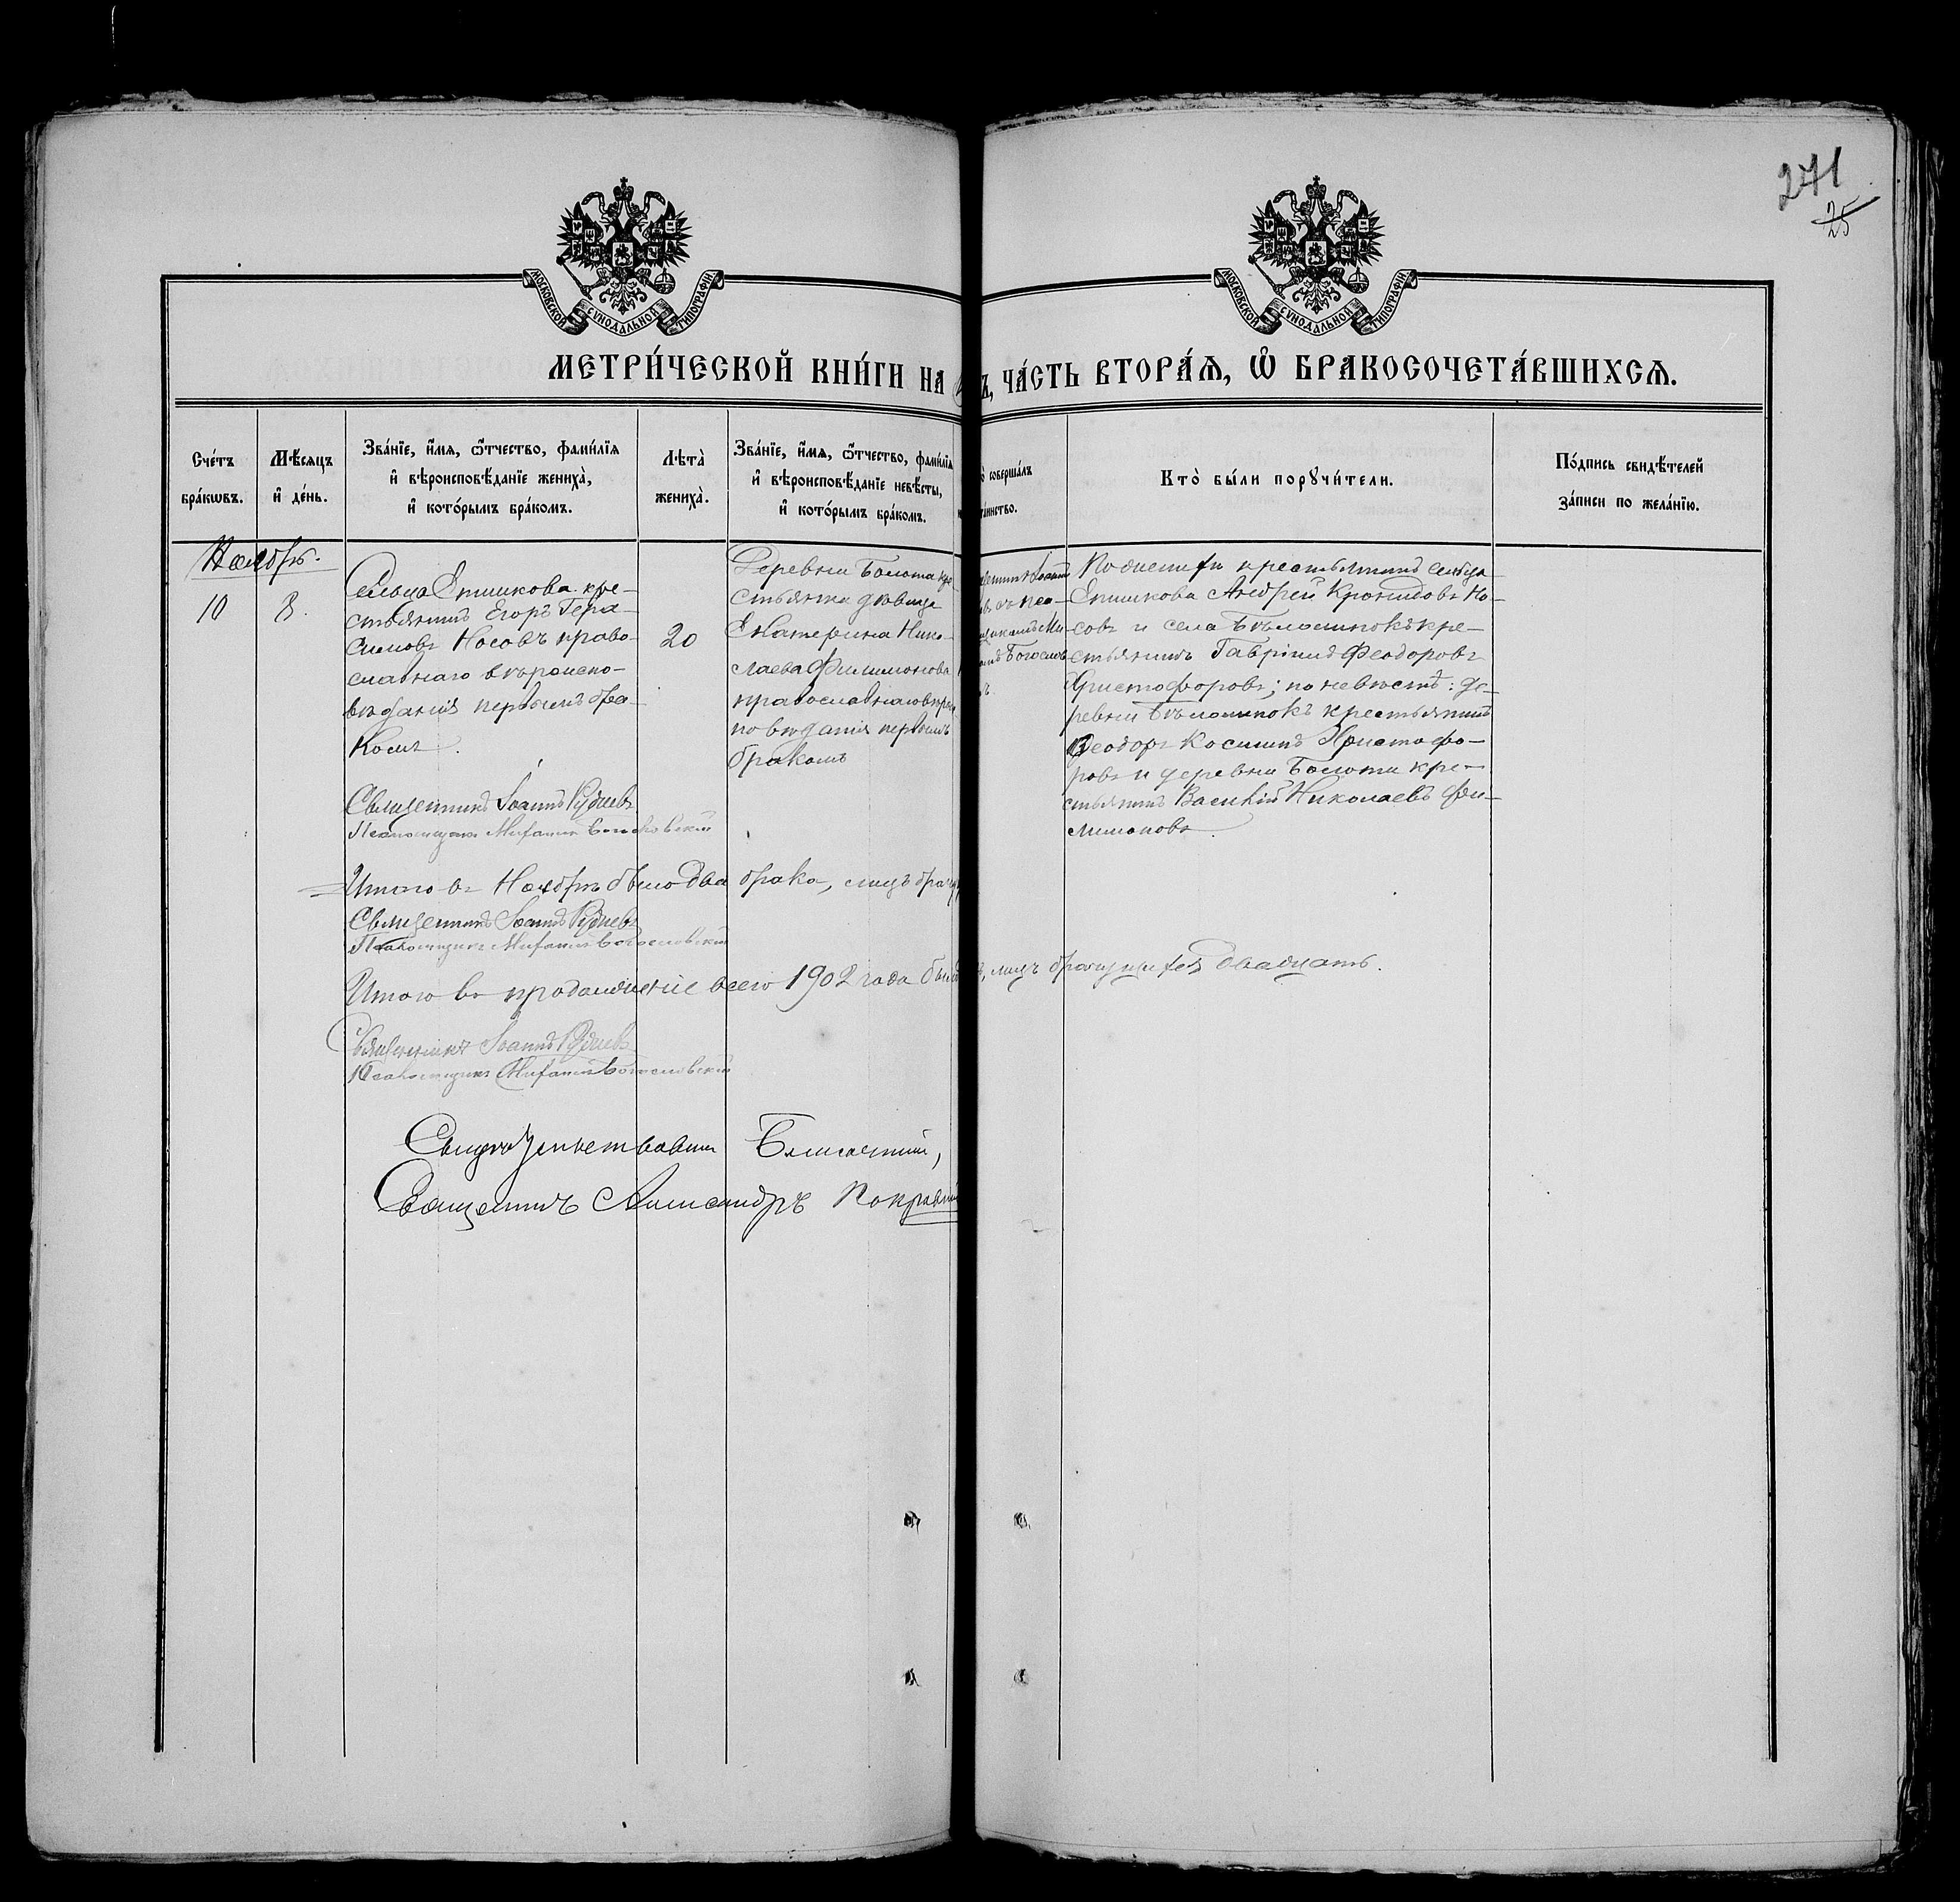 271
25
МОСКОВСКОЙ СѴНОДАЛЬНОЙ ТИПОГРАФІИ
МОСКОВСКОЙ СѴНОДАЛЬНОЙ ТИПОГРАФІИ
МЕТРИ́ЧЕСКОЙ КНИ́ГИ НА
Ъ, ЧА́СТЬ ВТОРА́Ѧ, Ѽ БРАКОСОЧЕТА́ВШИХСѦ.
Сче́тъ
бра́кѡвъ.
Мѣ́сяцъ
и҆ де́нь.
Зва́нїе, и҆́мѧ, ѻ҆́тчество, фами́лїѧ
и҆ вѣроисповѣ́данїе жениха̀,
и҆ кото́рымъ бра́комъ.
Лѣта̀
жениха̀.
Зва́нїе, и҆́мѧ, ѻ҆́тчество, фами́лїѧ
и҆ вѣроисповѣ́данїе невѣ́сты,
и҆ кото́рымъ бра́комъ.
о̀ соверша́лъ
таинство.
Кто̀ бы́ли порꙋчи́тели.
По́дпись свидѣ́телей
за́писи по жела́нїю.
Ноябрь.
10
8.
Сельца Епишкова кре-
стьянинъ Егоръ Гера-
симовъ Носовъ право-
славнаго вѣроиспо-
вѣданія первымъ бра-
комъ.
20
Деревни Болота кре
стьянка дѣвица
Екатерина Нико-
лаева Филимонова
православнаго вѣрои
повѣданія первымъ
бракомъ
щенникъ Іоаннъ
въ съ пса-
щикомъ Ми
Богослов
По женихѣ крестьянинъ сельца
Епишкова Андрей Кронидовъ Но-
совъ и села Бѣлошнокъ кре-
стьянинъ Гавріилъ Феодоровъ
Христофоровъ; по невѣстѣ: де-
ревни Бѣлошнокъ крестьянинъ
Феодоръ Косминъ Христофо-
ровъ и деревни Болоти кре-
стьянинъ Василій Николаевъ Фи-
лимоновъ.
Священникъ Іоаннъ Рудневъ
Псаломщикъ Михаилъ Богословскій
Итого въ Ноябрѣ было два брака, лицъ брач
Священникъ Іоаннъ Рудневъ
Псаломщикъ Михаилъ Богословскій
Итого въ продолженіе всего 1902 года было
, лицъ брачущихся двадцать.
Священникъ Іоаннъ Рудневъ
Псаломщикъ Михаилъ Богословскій
Свидѣтельствовалъ Благочинный,
Священникъ Александръ